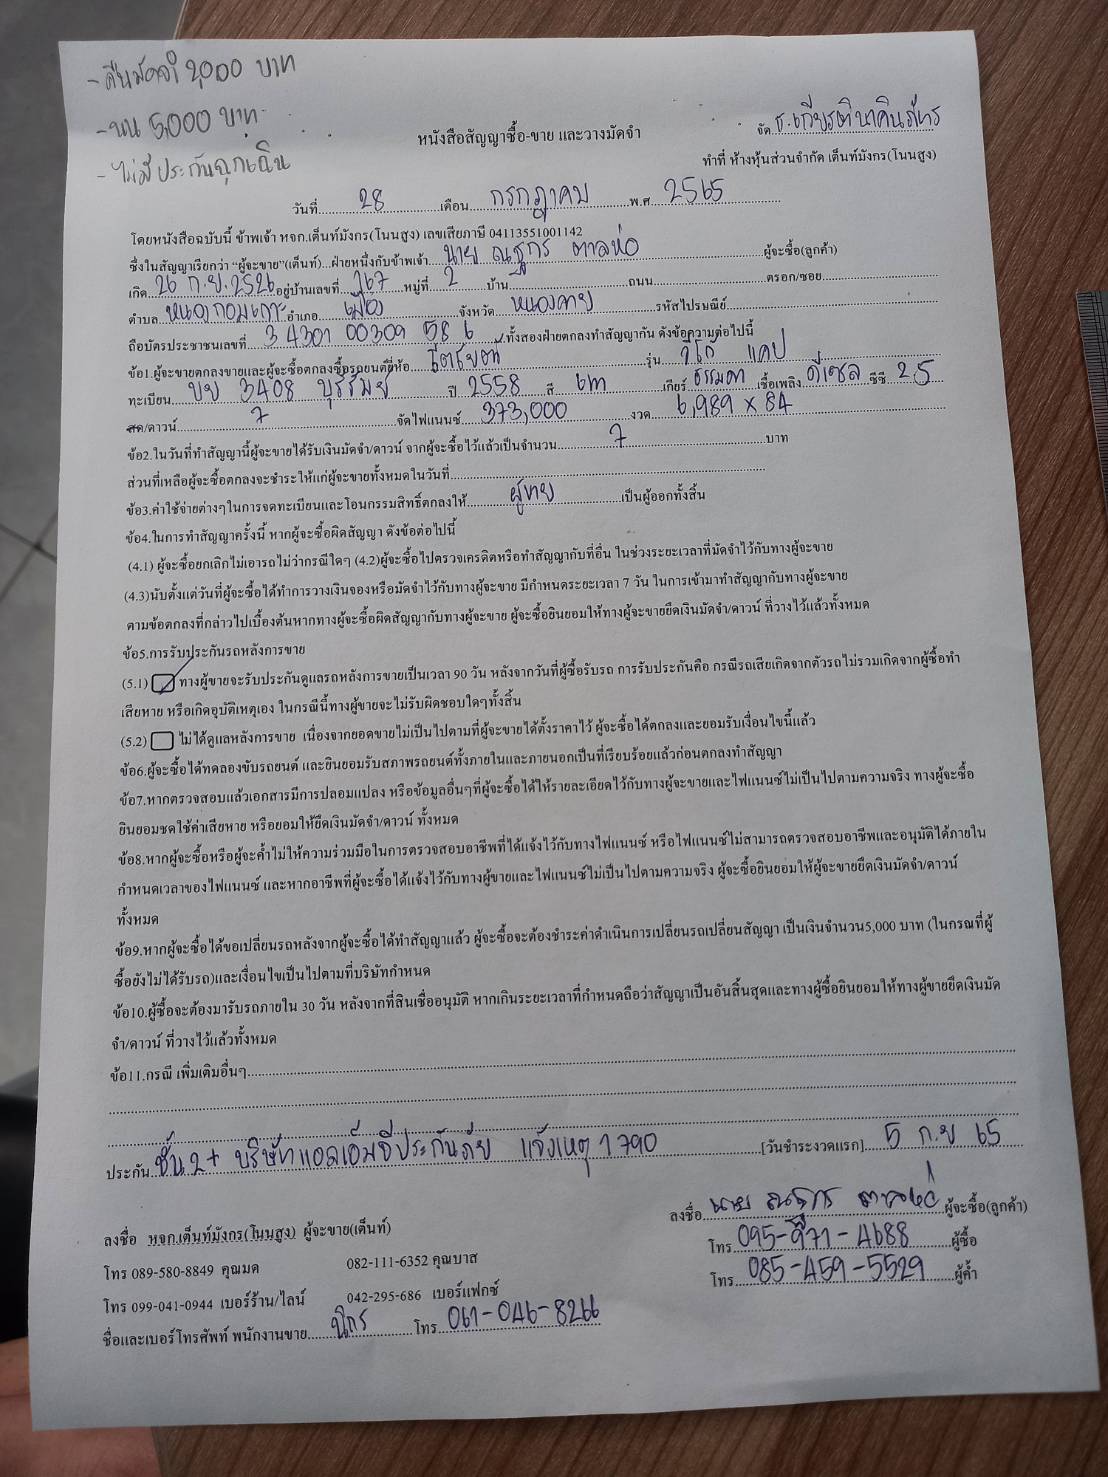 - คืนมัดจำ 2,000 บาท
- แนบ 5,000 บาท
- ไม่มีประกันฉุกเฉิน
จัด ธ.เกียรตินาคินภัทร
หนังสือสัญญาซื้อ-ขาย และวางมัดจำ
ทำที่ ห้างหุ้นส่วนจำกัด เต็นท์มังกร(โนนสูง)
วันที่ 28 เดือน กรกฎาคม พ.ศ. 2565
โดยหนังสือฉบับนี้ ข้าพเจ้า หจก.เต็นท์มังกร(โนนสูง) เลขเสียภาษี 04113551001142
ซึ่งในสัญญาเรียกว่า "ผู้จะขาย"(เต็นท์)...ฝ่ายหนึ่งกับข้าพเจ้า นาย ณฐกร ตาลห่อ ผู้จะซื้อ(ลูกค้า)
เกิด 26 ก.ย. 2526 อยู่บ้านเลขที่ 167 หมู่ที่ 2 บ้าน ถนน ตรอก/ซอย
ตำบล หนองกอมเกาะ อำเภอ เมือง จังหวัด หนองคาย รหัสไปรษณีย์
ถือบัตรประชาชนเลขที่ 3 4301 00309 58 6 ทั้งสองฝ่ายตกลงทำสัญญากัน ดังข้อความต่อไปนี้
ข้อ1.ผู้จะขายตกลงขายและผู้จะซื้อตกลงซื้อรถยนต์ยี่ห้อ โตโยต้า รุ่น วีโก้ แคป
ทะเบียน บย 3408 บุรีรัมย์ ปี 2558 สี เทา เกียร์ ธรรมดา เชื้อเพลิง ดีเซล ซีซี 2.5
สด/ดาวน์ 7 จัดไฟแนนซ์ 373,000 งวด 6,989 x 84
ข้อ2.ในวันที่ทำสัญญานี้ผู้จะขายได้รับเงินมัดจำ/ดาวน์ จากผู้จะซื้อไว้แล้วเป็นจำนวน 7 บาท
ส่วนที่เหลือผู้จะซื้อตกลงจะชำระให้แก่ผู้จะขายทั้งหมดในวันที่
ข้อ3.ค่าใช้จ่ายต่างๆในการจดทะเบียนและโอนกรรมสิทธิ์ตกลงให้ ผู้ขาย เป็นผู้ออกทั้งสิ้น
ข้อ4.ในการทำสัญญาครั้งนี้ หากผู้จะซื้อผิดสัญญา ดังข้อต่อไปนี้
(4.1) ผู้จะซื้อยกเลิกไม่เอารถไม่ว่ากรณีใดๆ (4.2)ผู้จะซื้อไปตรวจเครดิตหรือทำสัญญากับที่อื่น ในช่วงระยะเวลาที่มัดจำไว้กับทางผู้จะขาย
(4.3)นับตั้งแต่วันที่ผู้จะซื้อได้ทำการวางเงินจองหรือมัดจำไว้กับทางผู้จะขาย มีกำหนดระยะเวลา 7 วัน ในการเข้ามาทำสัญญากับทางผู้จะขาย
ตามข้อตกลงที่กล่าวไปเบื้องต้นหากทางผู้จะซื้อผิดสัญญากับทางผู้จะขาย ผู้จะซื้อยินยอมให้ทางผู้จะขายยึดเงินมัดจำ/ดาวน์ ที่วางไว้แล้วทั้งหมด
ข้อ5.การรับประกันรถหลังการขาย
(5.1) ทางผู้ขายจะรับประกันดูแลรถหลังการขายเป็นเวลา 90 วัน หลังจากวันที่ผู้ซื้อรับรถ การรับประกันคือ กรณีรถเสียเกิดจากตัวรถไม่รวมเกิดจากผู้ซื้อทำ
เสียหาย หรือเกิดอุบัติเหตุเอง ในกรณีนี้ทางผู้ขายจะไม่รับผิดชอบใดๆทั้งสิ้น
(5.2) ไม่ได้ดูแลหลังการขาย เนื่องจากยอดขายไม่เป็นไปตามที่ผู้จะขายได้ตั้งราคาไว้ ผู้จะซื้อได้ตกลงและยอมรับเงื่อนไขนี้แล้ว
ข้อ6.ผู้จะซื้อได้ทดลองขับรถยนต์ และยินยอมรับสภาพรถยนต์ทั้งภายในและภายนอกเป็นที่เรียบร้อยแล้วก่อนตกลงทำสัญญา
ข้อ7.หากตรวจสอบแล้วเอกสารมีการปลอมแปลง หรือข้อมูลอื่นๆที่ผู้จะซื้อได้ให้รายละเอียดไว้กับทางผู้จะขายและไฟแนนซ์ไม่เป็นไปตามความจริง ทางผู้จะซื้อ
ยินยอมชดใช้ค่าเสียหาย หรือยอมให้ยึดเงินมัดจำ/ดาวน์ ทั้งหมด
ข้อ8.หากผู้จะซื้อหรือผู้จะค้ำไม่ให้ความร่วมมือในการตรวจสอบอาชีพที่ได้แจ้งไว้กับทางไฟแนนซ์ หรือไฟแนนซ์ไม่สามารถตรวจสอบอาชีพและอนุมัติได้ภายใน
กำหนดเวลาของไฟแนนซ์ และหากอาชีพที่ผู้จะซื้อได้แจ้งไว้กับทางผู้ขายและไฟแนนซ์ไม่เป็นไปตามความจริง ผู้จะซื้อยินยอมให้ผู้จะขายยึดเงินมัดจำ/ดาวน์
ทั้งหมด
ข้อ9.หากผู้จะซื้อได้ขอเปลี่ยนรถหลังจากผู้จะซื้อได้ทำสัญญาแล้ว ผู้ซื้อจะต้องชำระค่าดำเนินการเปลี่ยนรถเปลี่ยนสัญญา เป็นเงินจำนวน5,000 บาท (ในกรณที่ผู้
ซื้อยังไม่ได้รับรถ)และเงื่อนไขเป็นไปตามที่บริษัทกำหนด
ข้อ10.ผู้ซื้อจะต้องมารับรถภายใน 30 วัน หลังจากที่สินเชื่ออนุมัติ หากเกินระยะเวลาที่กำหนดถือว่าสัญญาเป็นอันสิ้นสุดและทางผู้ซื้อยินยอมให้ทางผู้ขายยึดเงินมัด
จำ/ดาวน์ ที่วางไว้แล้วทั้งหมด
ข้อ11.กรณี เพิ่มเติมอื่นๆ
ประกัน ชั้น 2+ บริษัท แอลเอ็มจีประกันภัย แจ้งเหตุ 1790 [วันชำระงวดแรก] 5 ก.ย 65
ลงชื่อ นาย ณฐกร ตาลห่อ ผู้จะซื้อ(ลูกค้า)
ลงชื่อ หจก.เต็นท์มังกร(โนนสูง) ผู้จะขาย(เต็นท์)
โทร 095-971-4688 ผู้ซื้อ
โทร 089-580-8849 คุณมด 082-111-6352 คุณบาส
โทร 085-459-5529 ผู้ค้ำ
โทร 099-041-0944 เบอร์ร้าน/ไลน์ 042-295-686 เบอร์แฟกซ์
ชื่อและเบอร์โทรศัพท์ พนักงานขาย นิกร โทร 061-046-8266